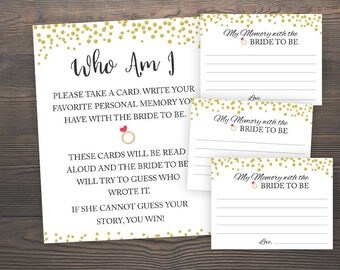 Who Am I
PLEASE TAKE A CARD, WRITE YOUR
FAVORITE PERSONAL MEMORY YOU
HAVE WITH THE BRIDE TO BE.
THESE CARDS WILL BE READ
ALOUD AND THE BRIDE TO BE
WILL TRY TO GUESS WHO
WROTE IT.
IF SHE CANNOT GUESS YOUR
STORY, YOU WIN!
My Memory with the
BRIDE TO BE
Love,
My Memory with the
BRIDE TO BE
My Memory with the
BRIDE TO BE
Love,